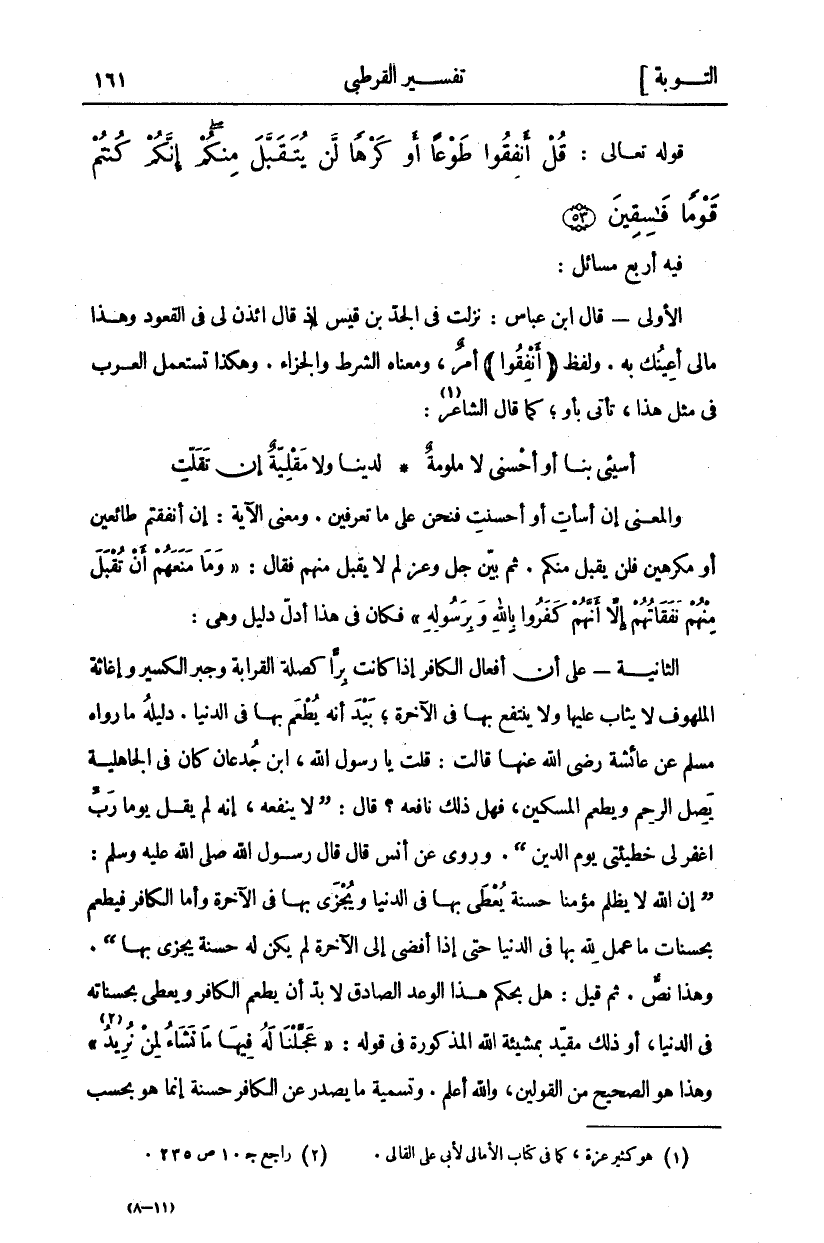 التوبة ]
تفسير القرطبى
١٦١
قوله تعالى : قُلْ أَنفِقُوا طَوْعًا أَو كَرْهًا لَّن يُتَقَبَّلَ مِنكُمْ ۖ إِنَّكُمْ كُنتُمْ
قَوْمًا فَـٰسِقِينَ ﴿٥٣﴾
فيه أربع مسائل :
الأولى – قال ابن عباس : نزلت فى الجدّ بن قيس إذ قال ائذن لى فى القعود وهذا
مالى أُعِينُك به . ولفظ ﴿ أَنْفِقُوا ﴾ أمرٌ ، ومعناه الشرط والجزاء . وهكذا تستعمل العرب
فى مثل هذا ، تأتى بأو ؛ كما قال الشاعر (١) :
أسيئى بنا أو أحْسنى لا ملومةٌ * لدينا ولا مَقْلِيّةٌ إن تَقَلّتِ
والمعنى إن أسأتِ أو أحسنتِ فنحن على ما تعرفين . ومعنى الآية : إن أنفقتم طائعين
أو مكرهين فلن يقبل منكم . ثم بيّن جل وعز لم لا يقبل منهم فقال : « وَمَا مَنَعَهُمْ أَنْ تُقْبَلَ
مِنْهُمْ نَفَقَاتُهُمْ إِلَّا أَنَّهُمْ كَفَرُوا بِاللهِ وَبِرَسُولِهِ » فكان فى هذا أدلّ دليل وهى :
الثانية – على أن أفعال الكافر إذا كانت بِرًّا كصلة القرابة وجبر الكسير وإغاثة
الملهوف لا يثاب عليها ولا ينتفع بها فى الآخرة ؛ بَيْدَ أنه يُطْعَم بها فى الدنيا . دليلهُ ما رواه
مسلم عن عائشة رضى الله عنها قالت : قلت يا رسول الله ، ابن جُدعان كان فى الجاهلية
يَصِل الرحم ويطعم المسكين، فهل ذلك نافعه ؟ قال : ” لا ينفعه ، إنه لم يقل يوما رَبِّ
اغفر لى خطيئتى يوم الدين “ . وروى عن أنس قال قال رسول الله صلى الله عليه وسلم :
” إن الله لا يظلم مؤمنا حسنة يُعْطَى بها فى الدنيا ويُجْزَى بها فى الآخرة وأما الكافر فيطعم
بحسنات ما عمل لله بها فى الدنيا حتى إذا أفضى إلى الآخرة لم يكن له حسنة يجزى بها “ .
وهذا نصٌّ . ثم قيل : هل بحكم هذا الوعد الصادق لا بدّ أن يطعم الكافر ويعطى بحسناته
فى الدنيا، أو ذلك مقيّد بمشيئة الله المذكورة فى قوله : « عَجَّلْنَا لَهُ فِيهَا مَا نَشَاءُ لِمَنْ نُرِيدُ (٢) »
وهذا هو الصحيح من القولين، والله أعلم . وتسمية ما يصدر عن الكافر حسنة إنما هو بحسب
(١) هو كثير عزة ، كما فى كتاب الأمالى لأبى على القالى .
(٢) راجع جـ ١٠ ص ٢٣٥ .
(٨-١١)